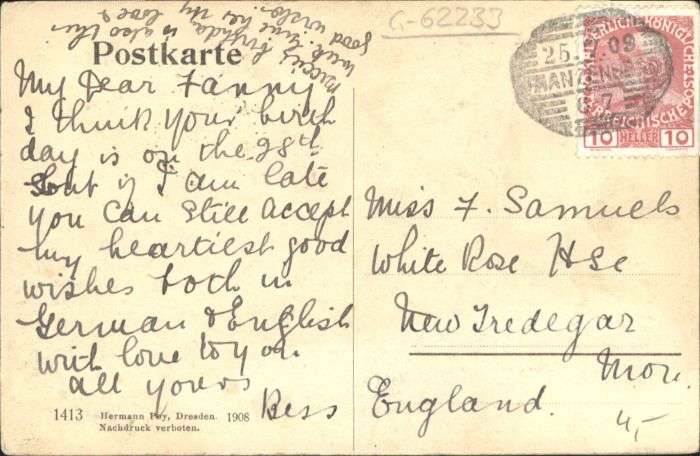 G-62233
Postkarte
birthday is also this
week give her my love &
good wishes.
My Dear Fanny
I think your birth
day is on the 28th
but if I am late
you can still accept
my heartiest good
wishes both in
German & English
with love to you
all yours
Bess
1413 Hermann Poy, Dresden. 1908
Nachdruck verboten.
25. 09
10 HELLER 10
Miss F. Samuels
White Rose Hse
New Tredegar
Mon.
England.
4,-